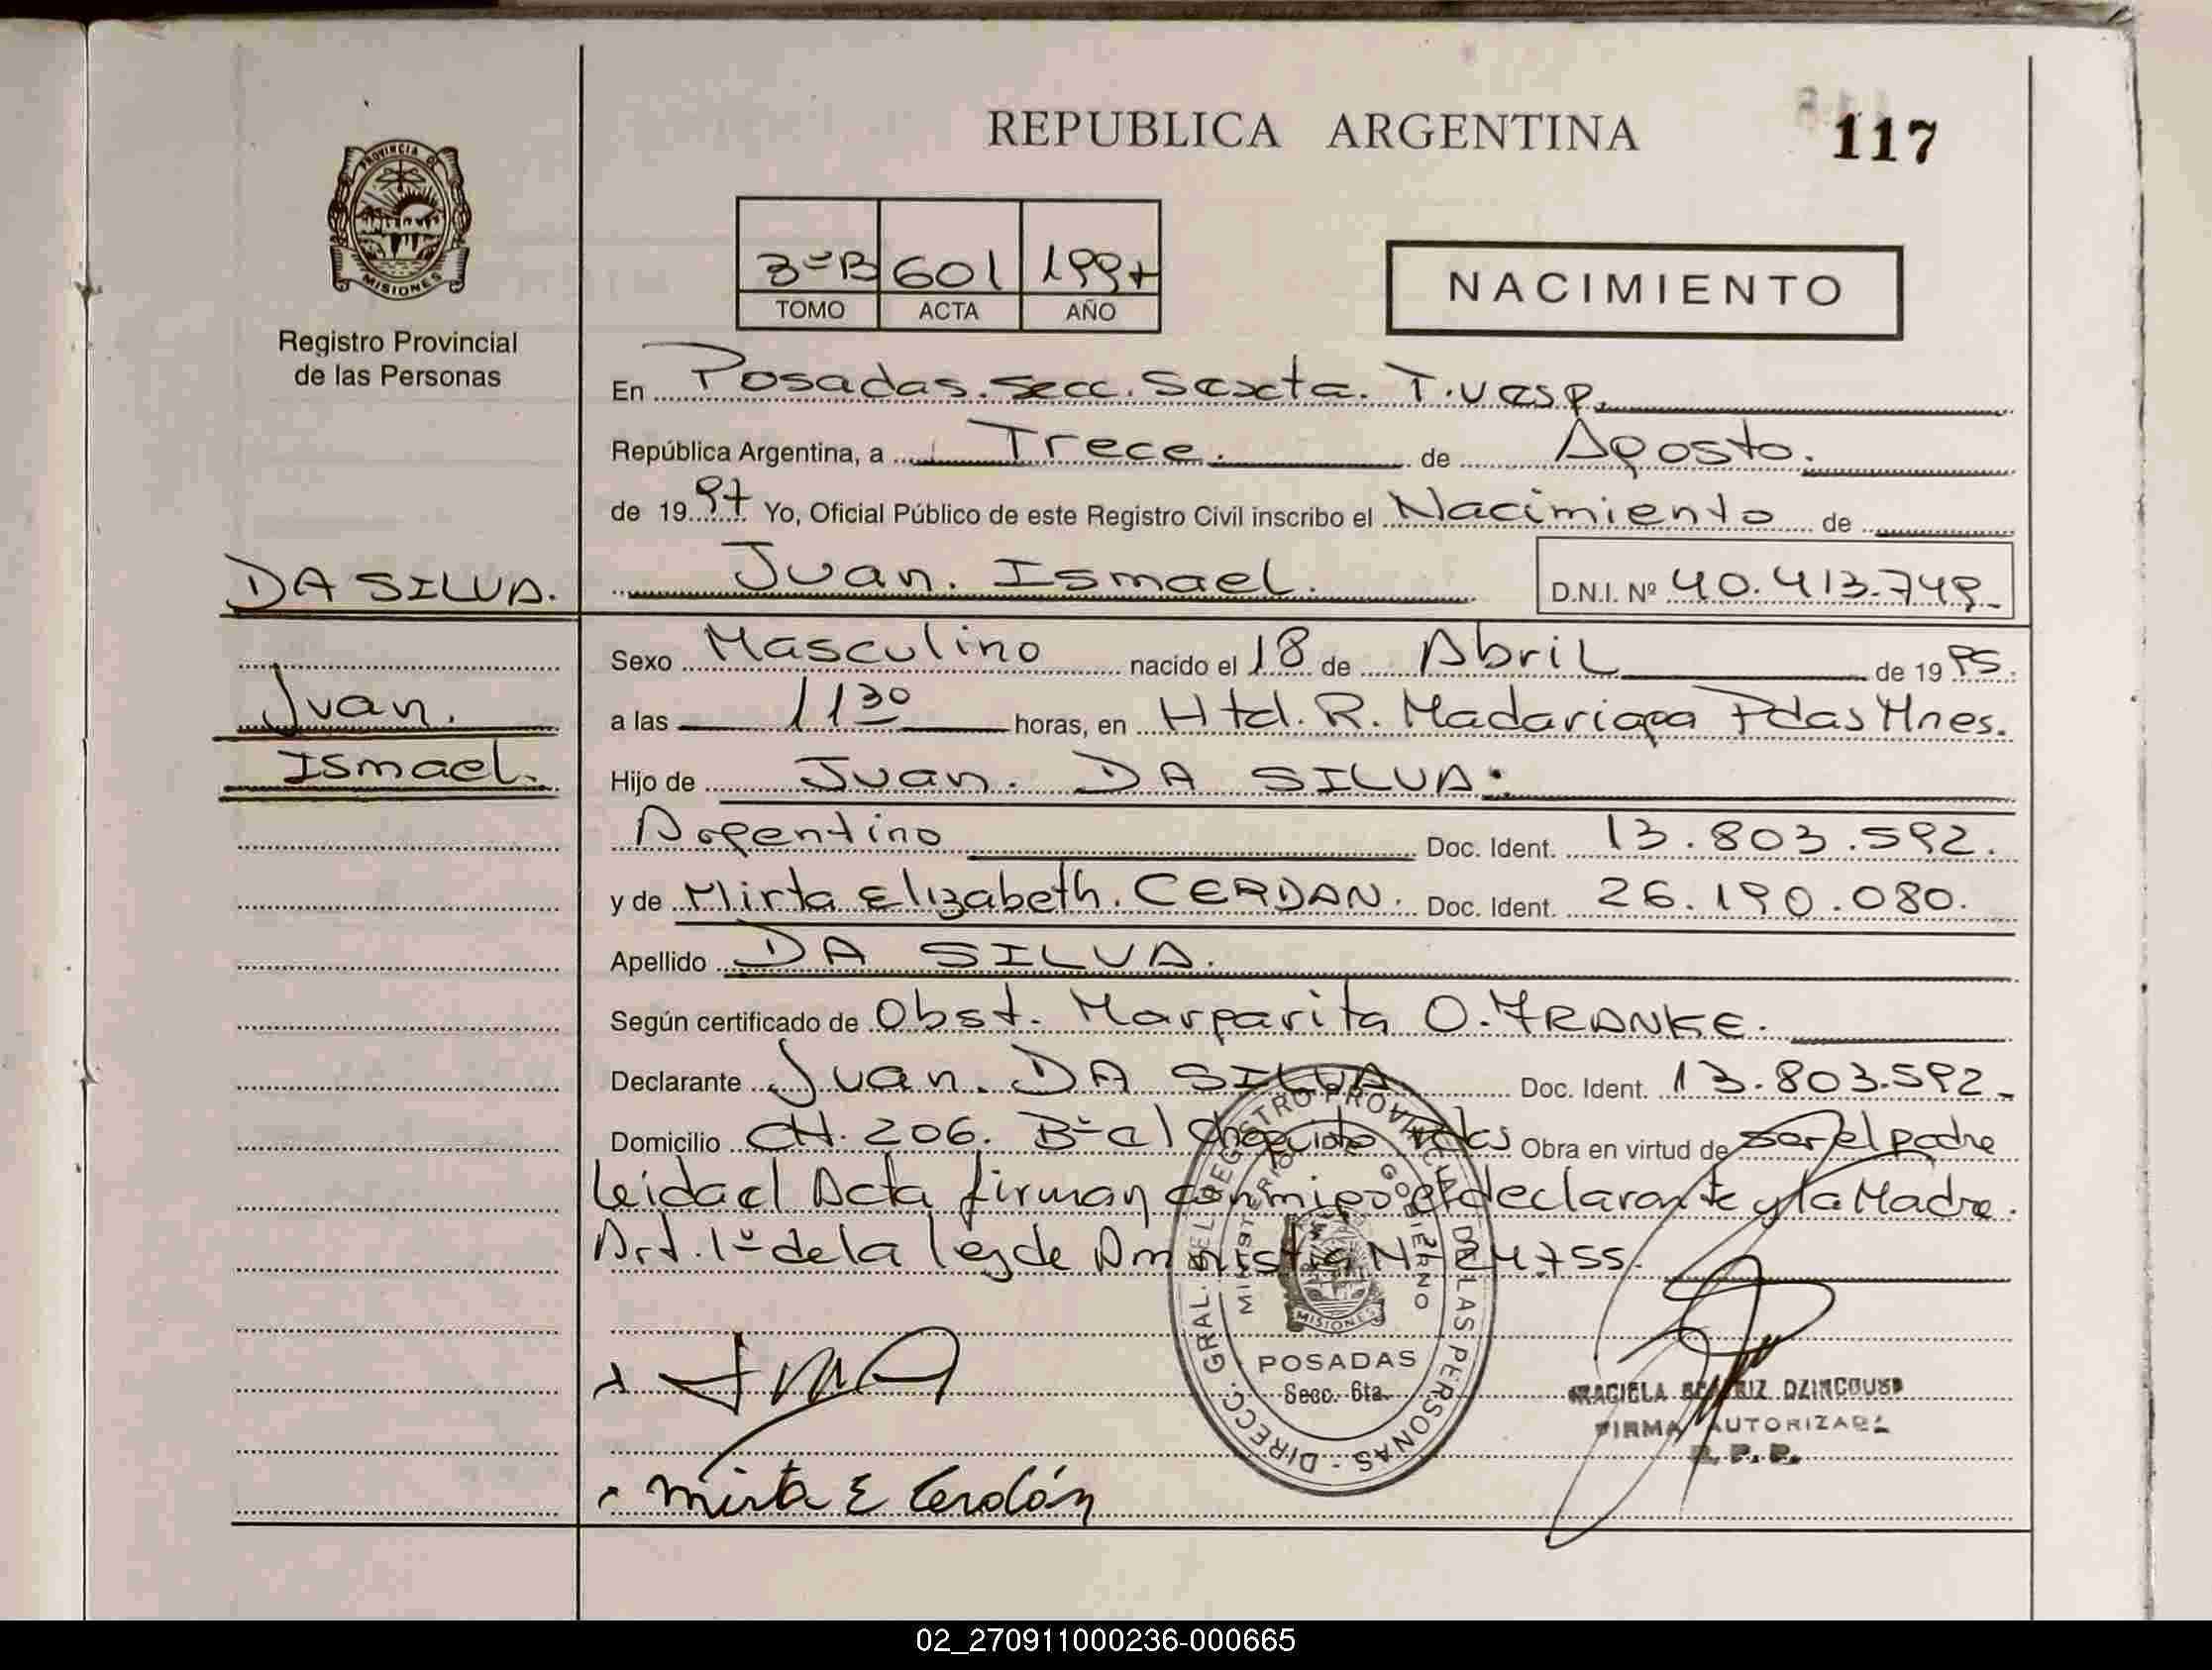 REPUBLICA ARGENTINA
117
PROVINCIA DE
MISIONES
Registro Provincial
de las Personas
3º B 601 1997
TOMO ACTA AÑO
NACIMIENTO
En Posadas. Secc. Sexta. T. vesp.
República Argentina, a Trece. de Agosto.
de 19 97 Yo, Oficial Público de este Registro Civil inscribo el Nacimiento de
DA SILVA.
Juan. Ismael.
D.N.I. Nº 40.413.749
Juan.
Ismael.
Sexo Masculino nacido el 18 de Abril de 19 95
a las 11 30 horas, en Htal. R. Madariaga Pdas Mnes.
Hijo de Juan. DA SILVA.
Argentino Doc. Ident. 13.803.592.
y de Mirta Elizabeth. CERDAN. Doc. Ident. 26.190.080.
Apellido DA SILVA.
Según certificado de Obst. Margarita O. FRANKE.
Declarante Juan. DA SILVA Doc. Ident. 13.803.592
Domicilio CH. 206. Bº el Obra en virtud de ser el padre
Leida el Acta firman conmigo el declarante y la Madre.
Art. 1º de la ley de Amnistia Nº 24.755.
DIRECC. GRAL. DEL REGISTRO PROVINCIAL DE LAS PERSONAS
MINISTERIO GOBIERNO
MISIONES
POSADAS
Secc. 6ta.
GRACIELA BEATRIZ
FIRMA AUTORIZADA
R. P. P.
Mirta E Cerdán
02_270911000236-000665